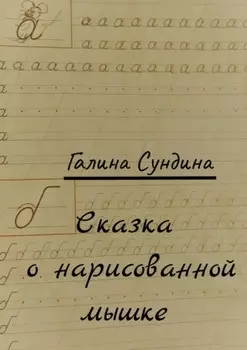 а
Галина Сундина
б
Сказка
о нарисованной
мышке